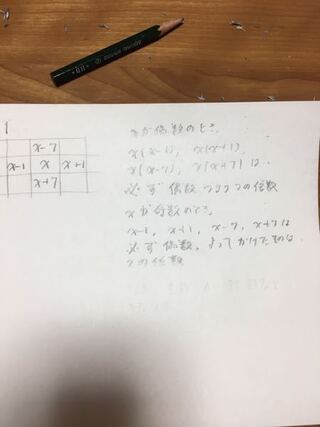 1
x-7
x-1 x x+1
x+7
xが偶数のとき、
x(x-1), x(x+1),
x(x-7), x(x+7)は
必ず偶数つまり2の倍数
xが奇数のとき、
x-1, x+1, x-7, x+7は
必ず偶数、よってかけたものは、
2の倍数